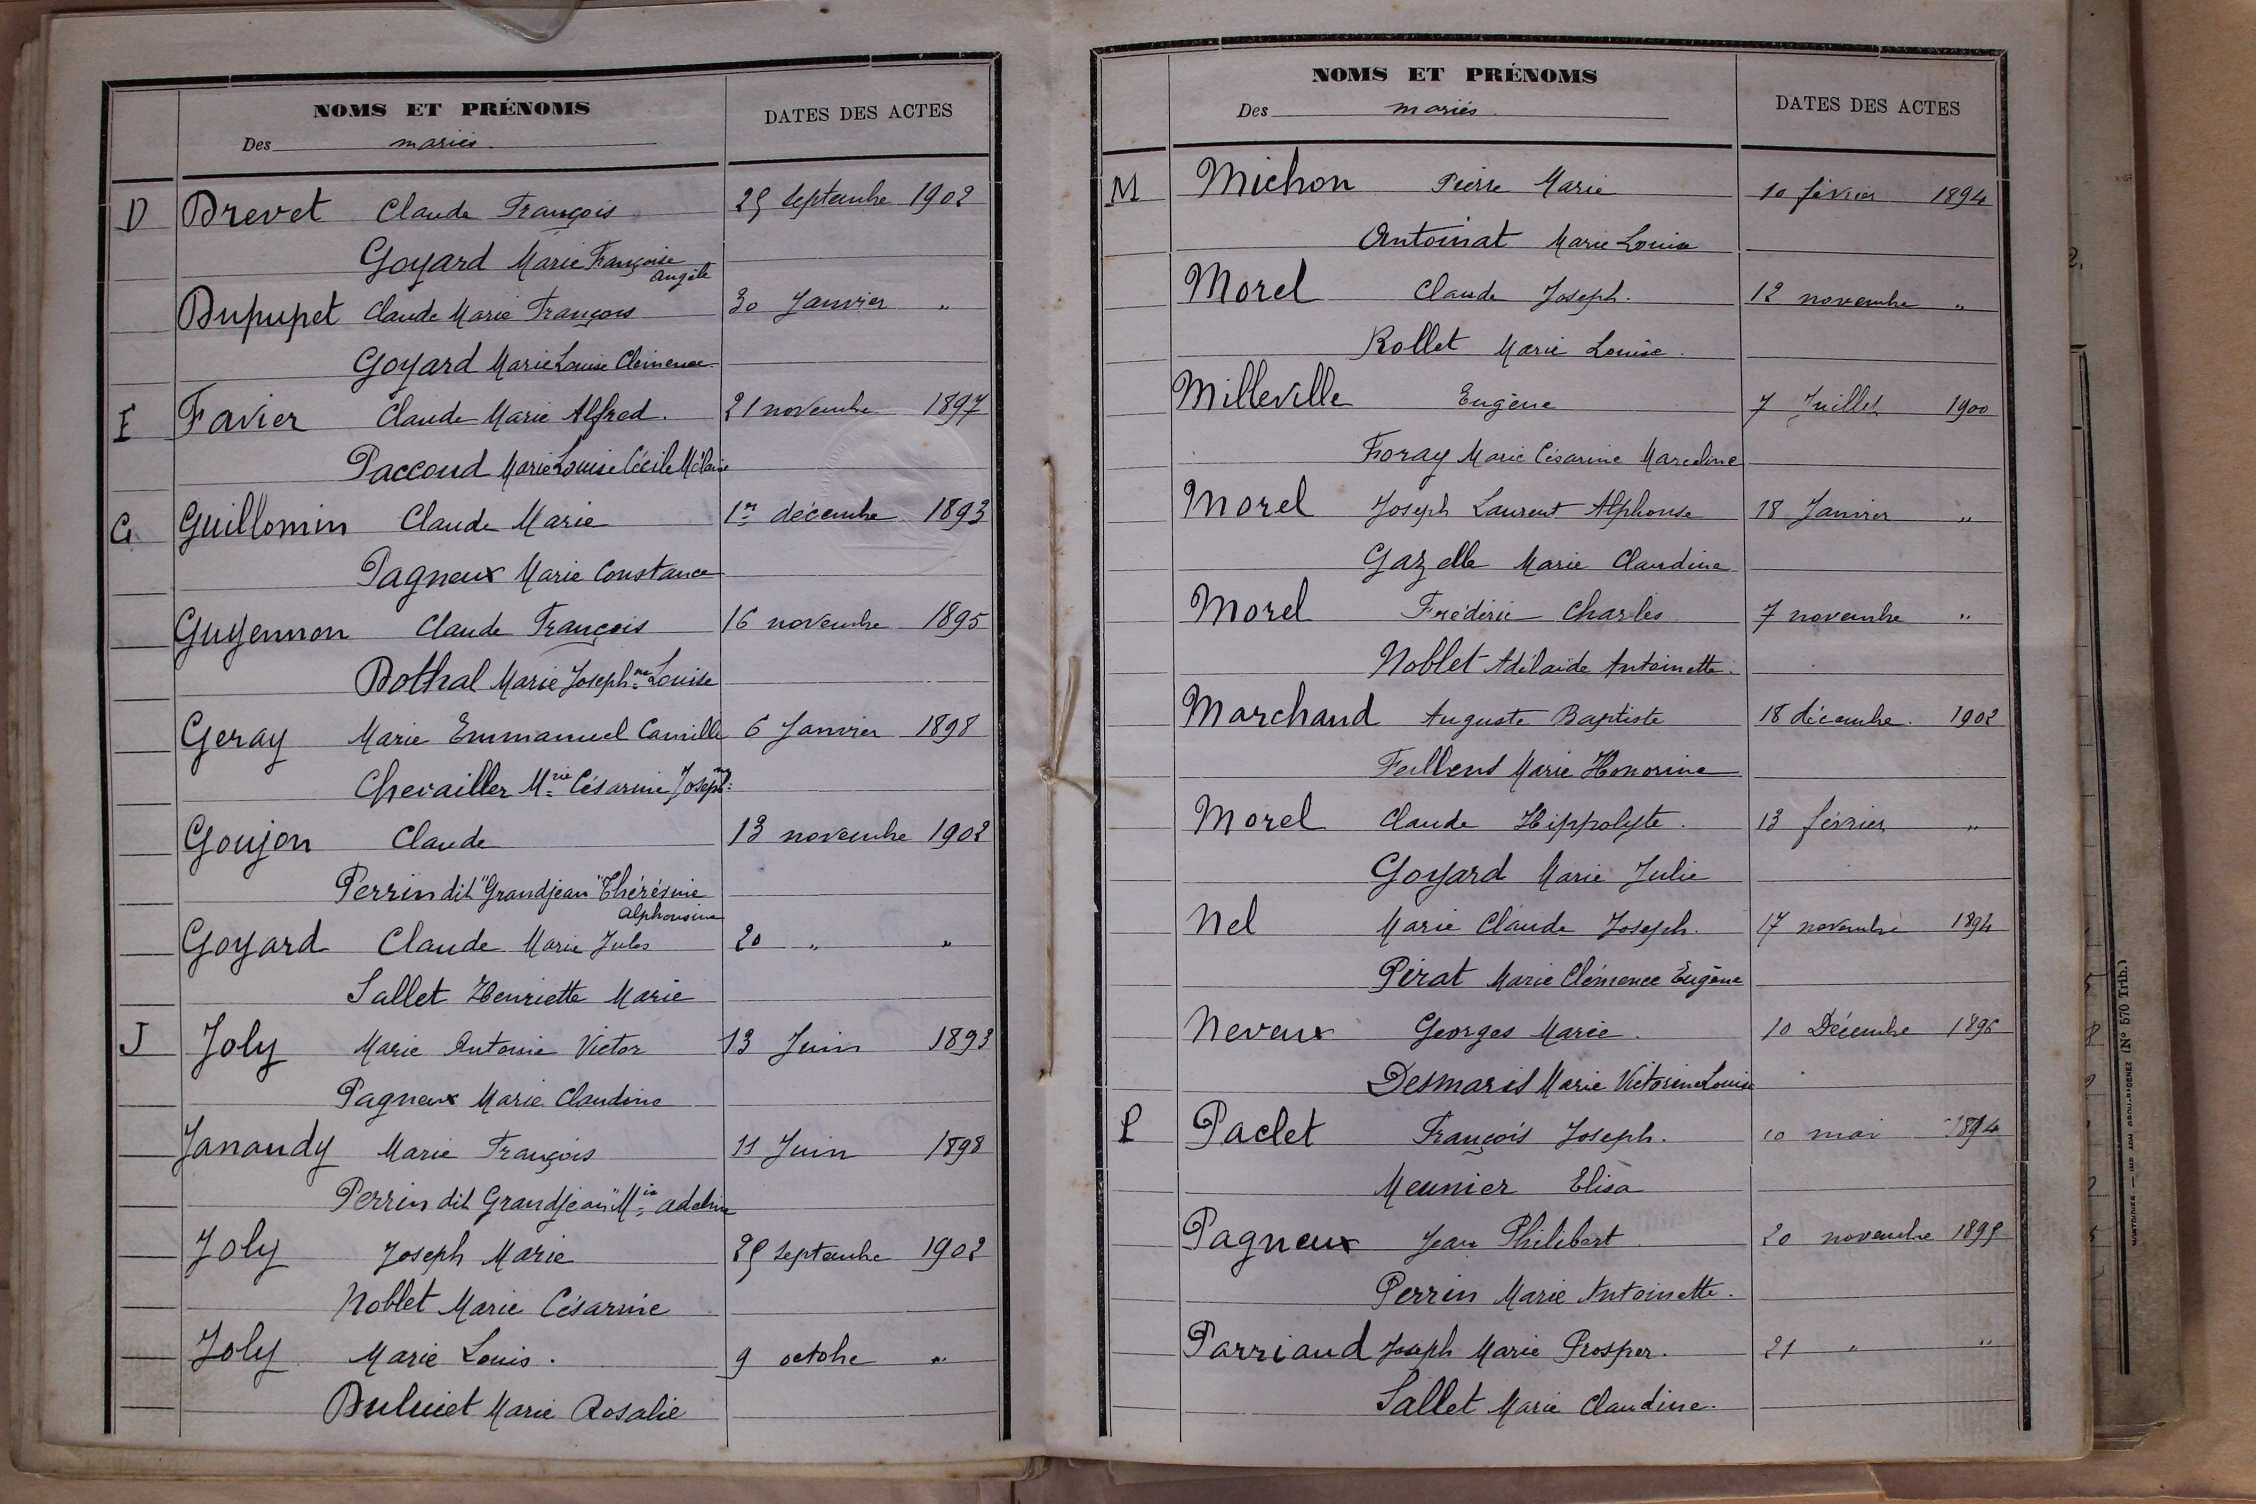 NOMS ET PRÉNOMS
DATES DES ACTES
Des mariés
D Brevet Claude François 25 Septembre 1902
Goyard Marie Françoise
Angèle
Dupupet Claude Marie François 30 Janvier "
Goyard Marie Louise Clémence
F Favier Claude Marie Alfred. 21 novembre 1897
Paccoud Marie Louise Cécile Mélanie
G Guillomin Claude Marie 1er décembre 1893
Pagneux Marie Constance
Guyennon Claude François 16 novembre 1895
Bothal Marie Josephne Louise
Geray Marie Emmanuel Camille 6 Janvier 1898
Chevailler Mrie Césarine Josephne
Goujon Claude 13 novembre 1902
Perrin dit "Grandjean" Thérésine
Alphonsine
Goyard Claude Marie Jules 20 " "
Sallet Henriette Marie
J Joly Marie Antoine Victor 13 Juin 1893
Pagneux Marie Claudine
Janaudy Marie François 11 Juin 1898
Perrin dit Grandjean" Mie adeline
Joly Joseph Marie 25 septembre 1902
Noblet Marie Césarine
Joly Marie Louis. 9 octobre "
Marie Rosalie
NOMS ET PRÉNOMS
DATES DES ACTES
Des mariés
M Michon Pierre Marie 10 février 1894
Antoinat Marie Louise
Morel Claude Joseph. 12 novembre "
Rollet Marie Louise.
Milleville Eugène 7 Juillet 1900
Foray Marie Césarine Marceline
Morel Joseph Laurent Alphonse 18 Janvier "
Gazelle Marie Claudine
Morel Frédéric Charles 7 novembre "
Noblet Adélaïde Antoinette.
Marchand Auguste Baptiste 18 décembre. 1902
Marie Honorine
Morel Claude Hippolyte. 13 février "
Goyard Marie Julie
Nel Marie Claude Joseph. 17 novembre 1894
Pérat Marie Clémence Eugène
Neveux Georges Marie. 10 Décembre 1896
Desmaris Marie Victorine Louise
P Paclet François Joseph. 10 mai 1894
Meunier Elisa
Pagneux Jean Philibert 20 novembre 1895
Perrin Marie Antoinette.
Parriaud Joseph Marie Prosper. 21 " "
Sallet Marie Claudine.
(N° 570 Trib.)